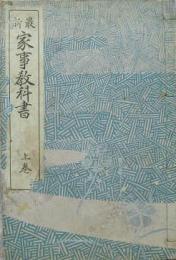 最新 家事教科書 上巻